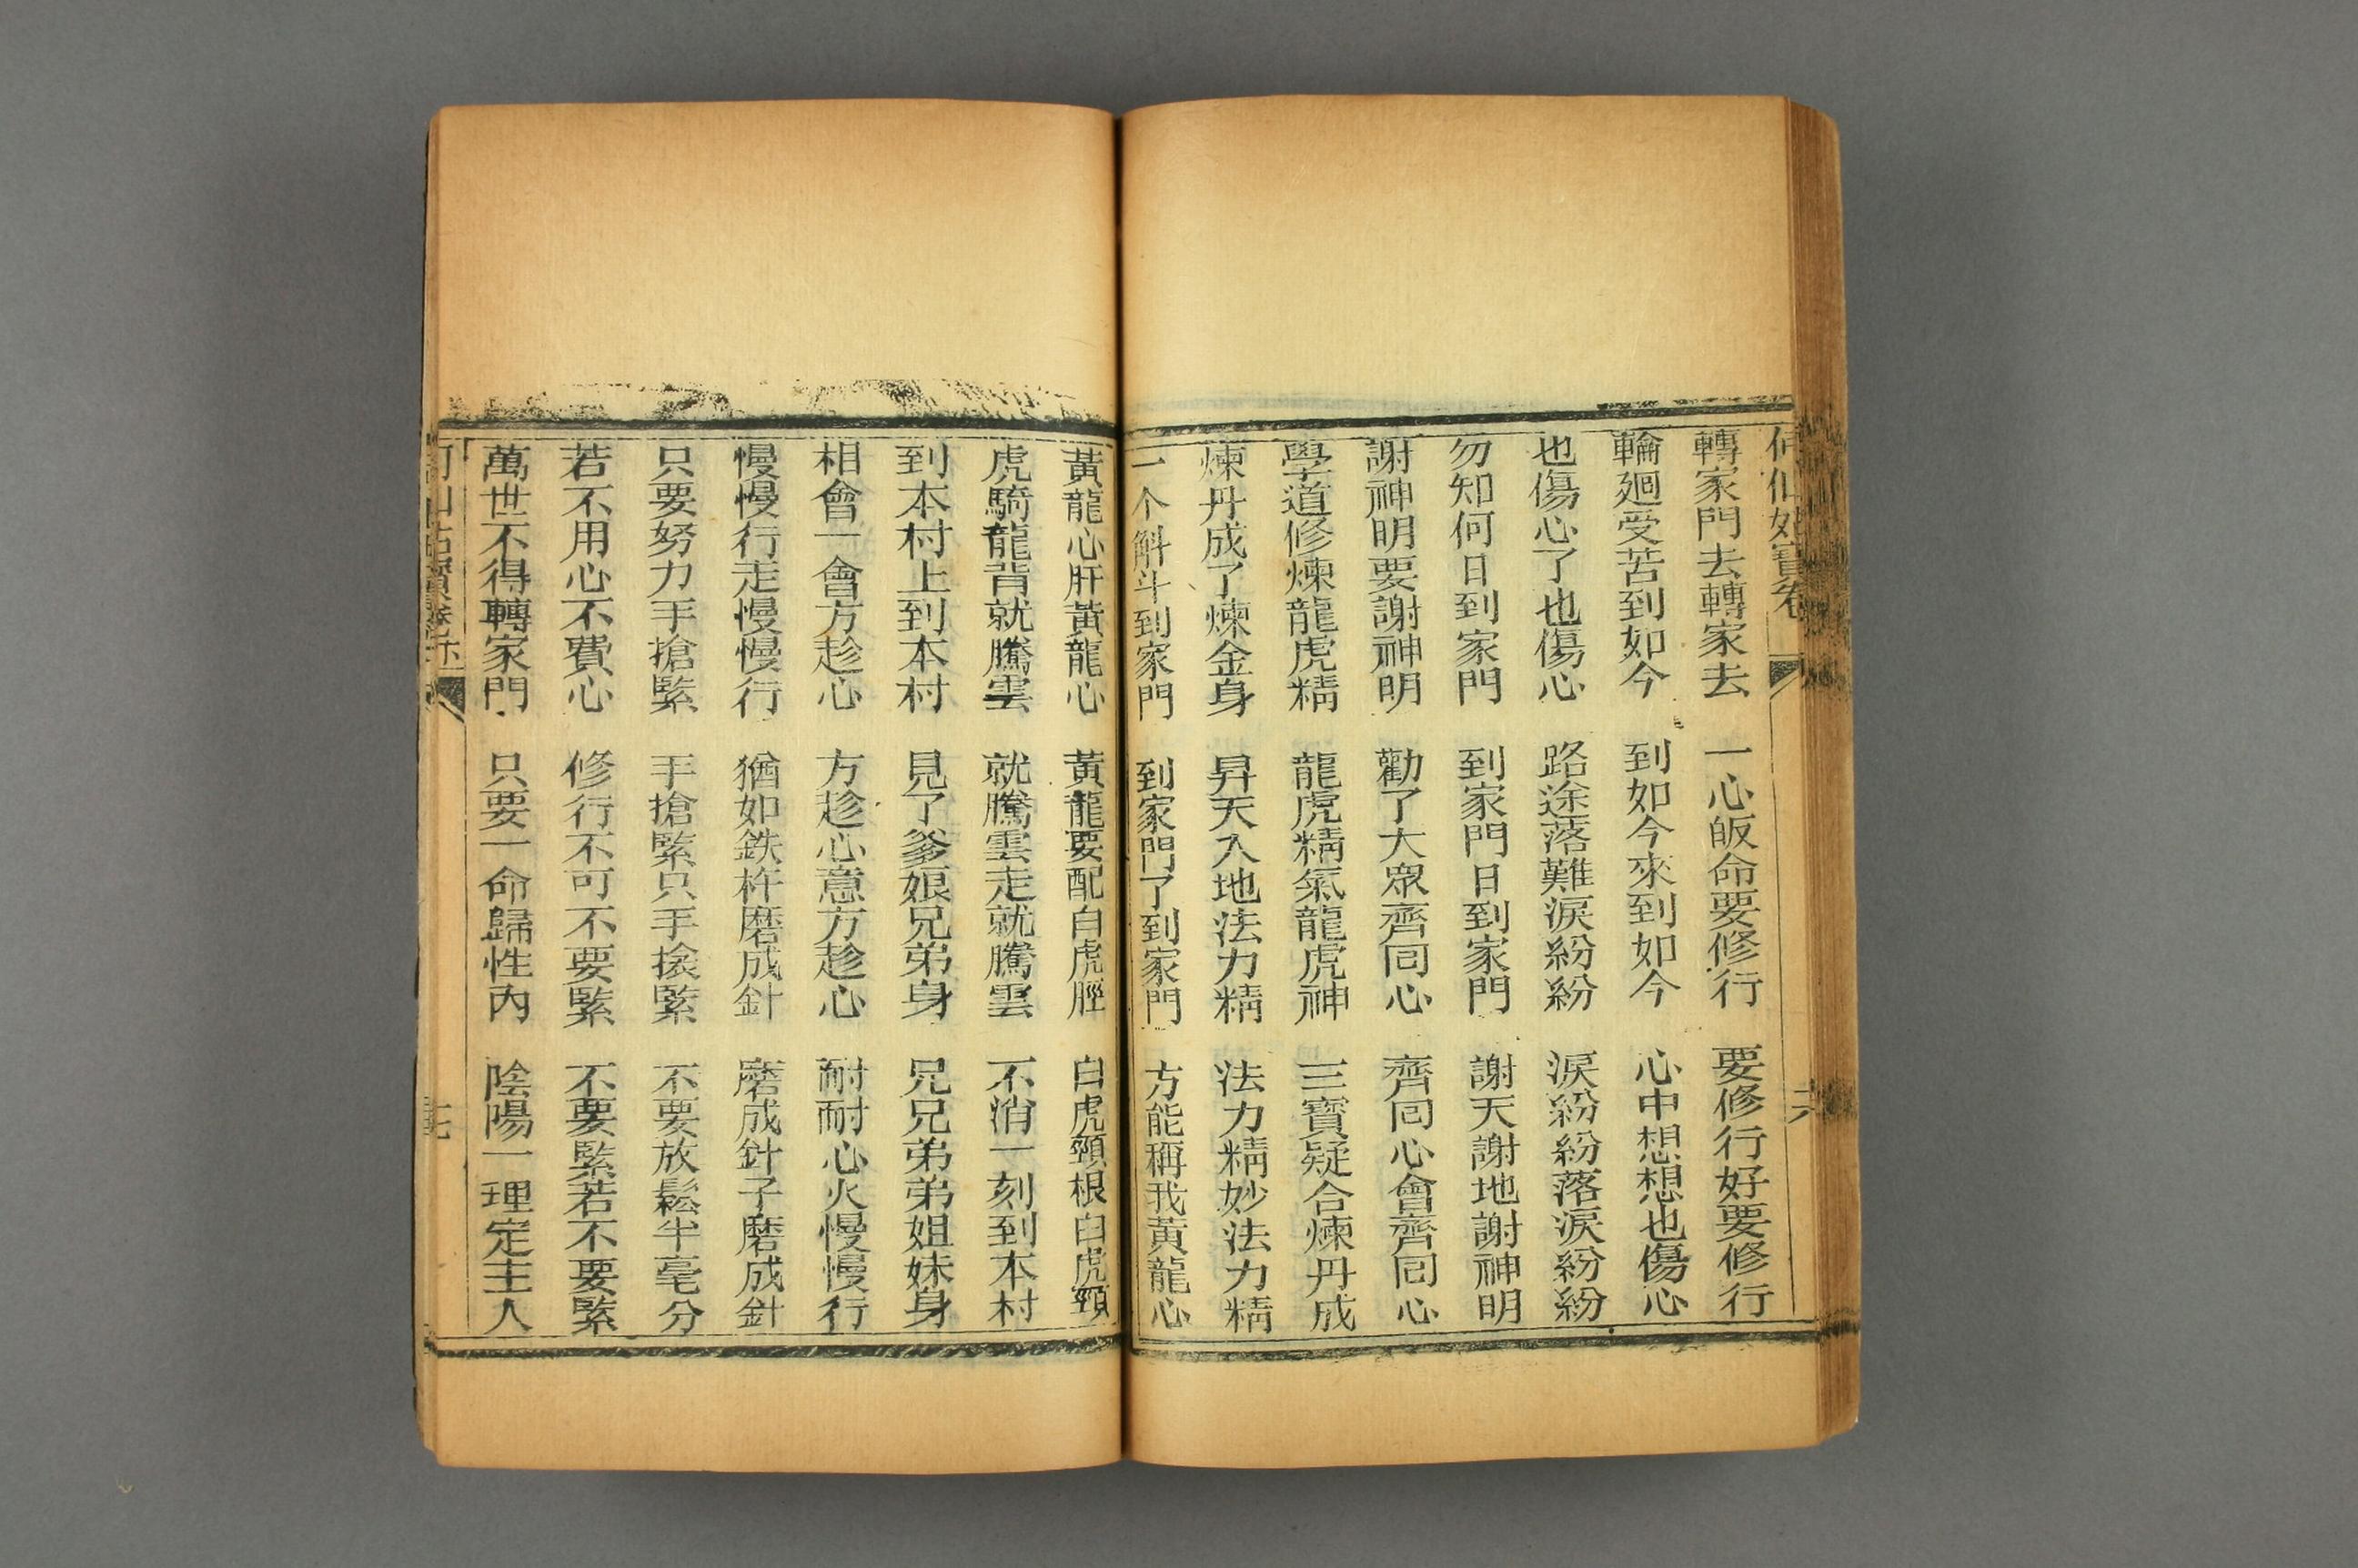 何仙姑寶卷
六
轉家門去轉家去 一心皈命要修行 要修行好要修行
輪廻受苦到如今 到如今來到如今 心中想想也傷心
也傷心了也傷心 路途落難淚紛紛 淚紛紛落淚紛紛
勿知何日到家門 到家門日到家門 謝天謝地謝神明
謝神明要謝神明 勸了大眾齊同心 齊同心會齊同心
學道修煉龍虎精 龍虎精氣龍虎神 三寶疑合煉丹成
煉丹成了煉金身 昇天入地法力精 法力精妙法力精
一个斛斗到家門 到家門了到家門 方能稱我黃龍心
黃龍心肝黃龍心 黃龍要配白虎脛 白虎頸根白虎頸
虎騎龍背就騰雲 就騰雲走就騰雲 不消一刻到本村
到本村上到本村 見了爹娘兄弟身 兄兄弟弟姐妹身
相會一會方趁心 方趁心意方趁心 耐耐心火慢慢行
慢慢行走慢慢行 猶如鉄杵磨成針 磨成針子磨成針
只要努力手搶緊 手搶緊只手搶緊 不要放鬆半毫分
若不用心不費心 修行不可不要緊 不要緊若不要緊
萬世不得轉家門 只要一命歸性內 陰陽一理定主人
七